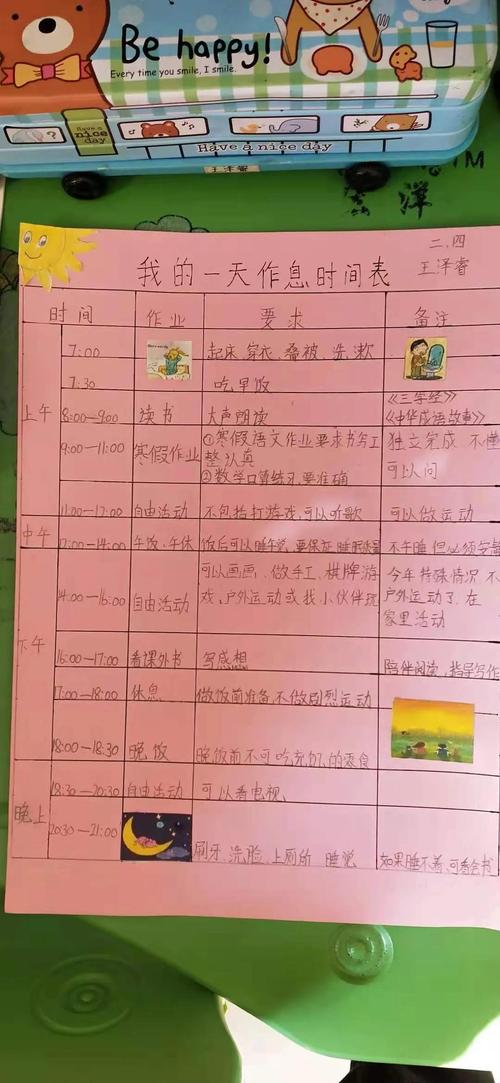 Be happy!
Every time you smile, I smile.
Have a nice day
Have a nice day
王泽睿
TM
洋
二.四
王泽睿
我的一天作息时间表
时间 作业 要求 备注
7:00 起床 穿衣 叠被 洗 漱
7:30 吃早饭
上午 8:00—9:00 读书 大声朗读 《三字经》
《中华成语故事》
9:00—11:00 寒假作业 ①寒假语文作业要求书写工
整认真
②数学口算练习要准确
独立完成 不懂
可以问
11:00—12:00 自由活动 不包括打游戏,可以听歌 可以做运动
中午 12:00—14:00 午饭、午休 饭后可以睡午觉,要保证睡眠质量 不午睡但必须安静
下午 14:00—16:00 自由活动 可以画画、做手工、棋牌游
戏,户外运动或找小伙伴玩
今年特殊情况不
户外运动了.在
家里活动
16:00—17:00 看课外书 写感想 陪伴阅读,指导写作
17:00—18:00 休息 做饭前准备,不做剧烈运动
18:00—18:30 晚饭 晚饭前不可吃充饥的零食
晚上 18:30—20:30 自由活动 可以看电视
20:30—21:00 刷牙、洗脸、上厕所 睡觉 如果睡不着,可看会书